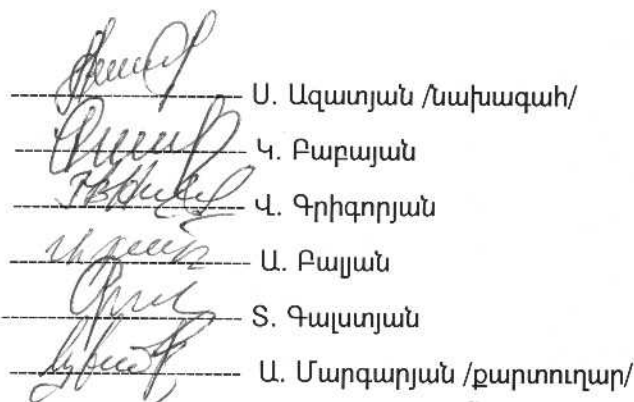 Ս. Ազատյան /նախագահ/
Կ. Բաբայան
Վ. Գրիգորյան
Ա. Բալյան
Տ. Գալստյան
Ա. Մարգարյան /քարտուղար/